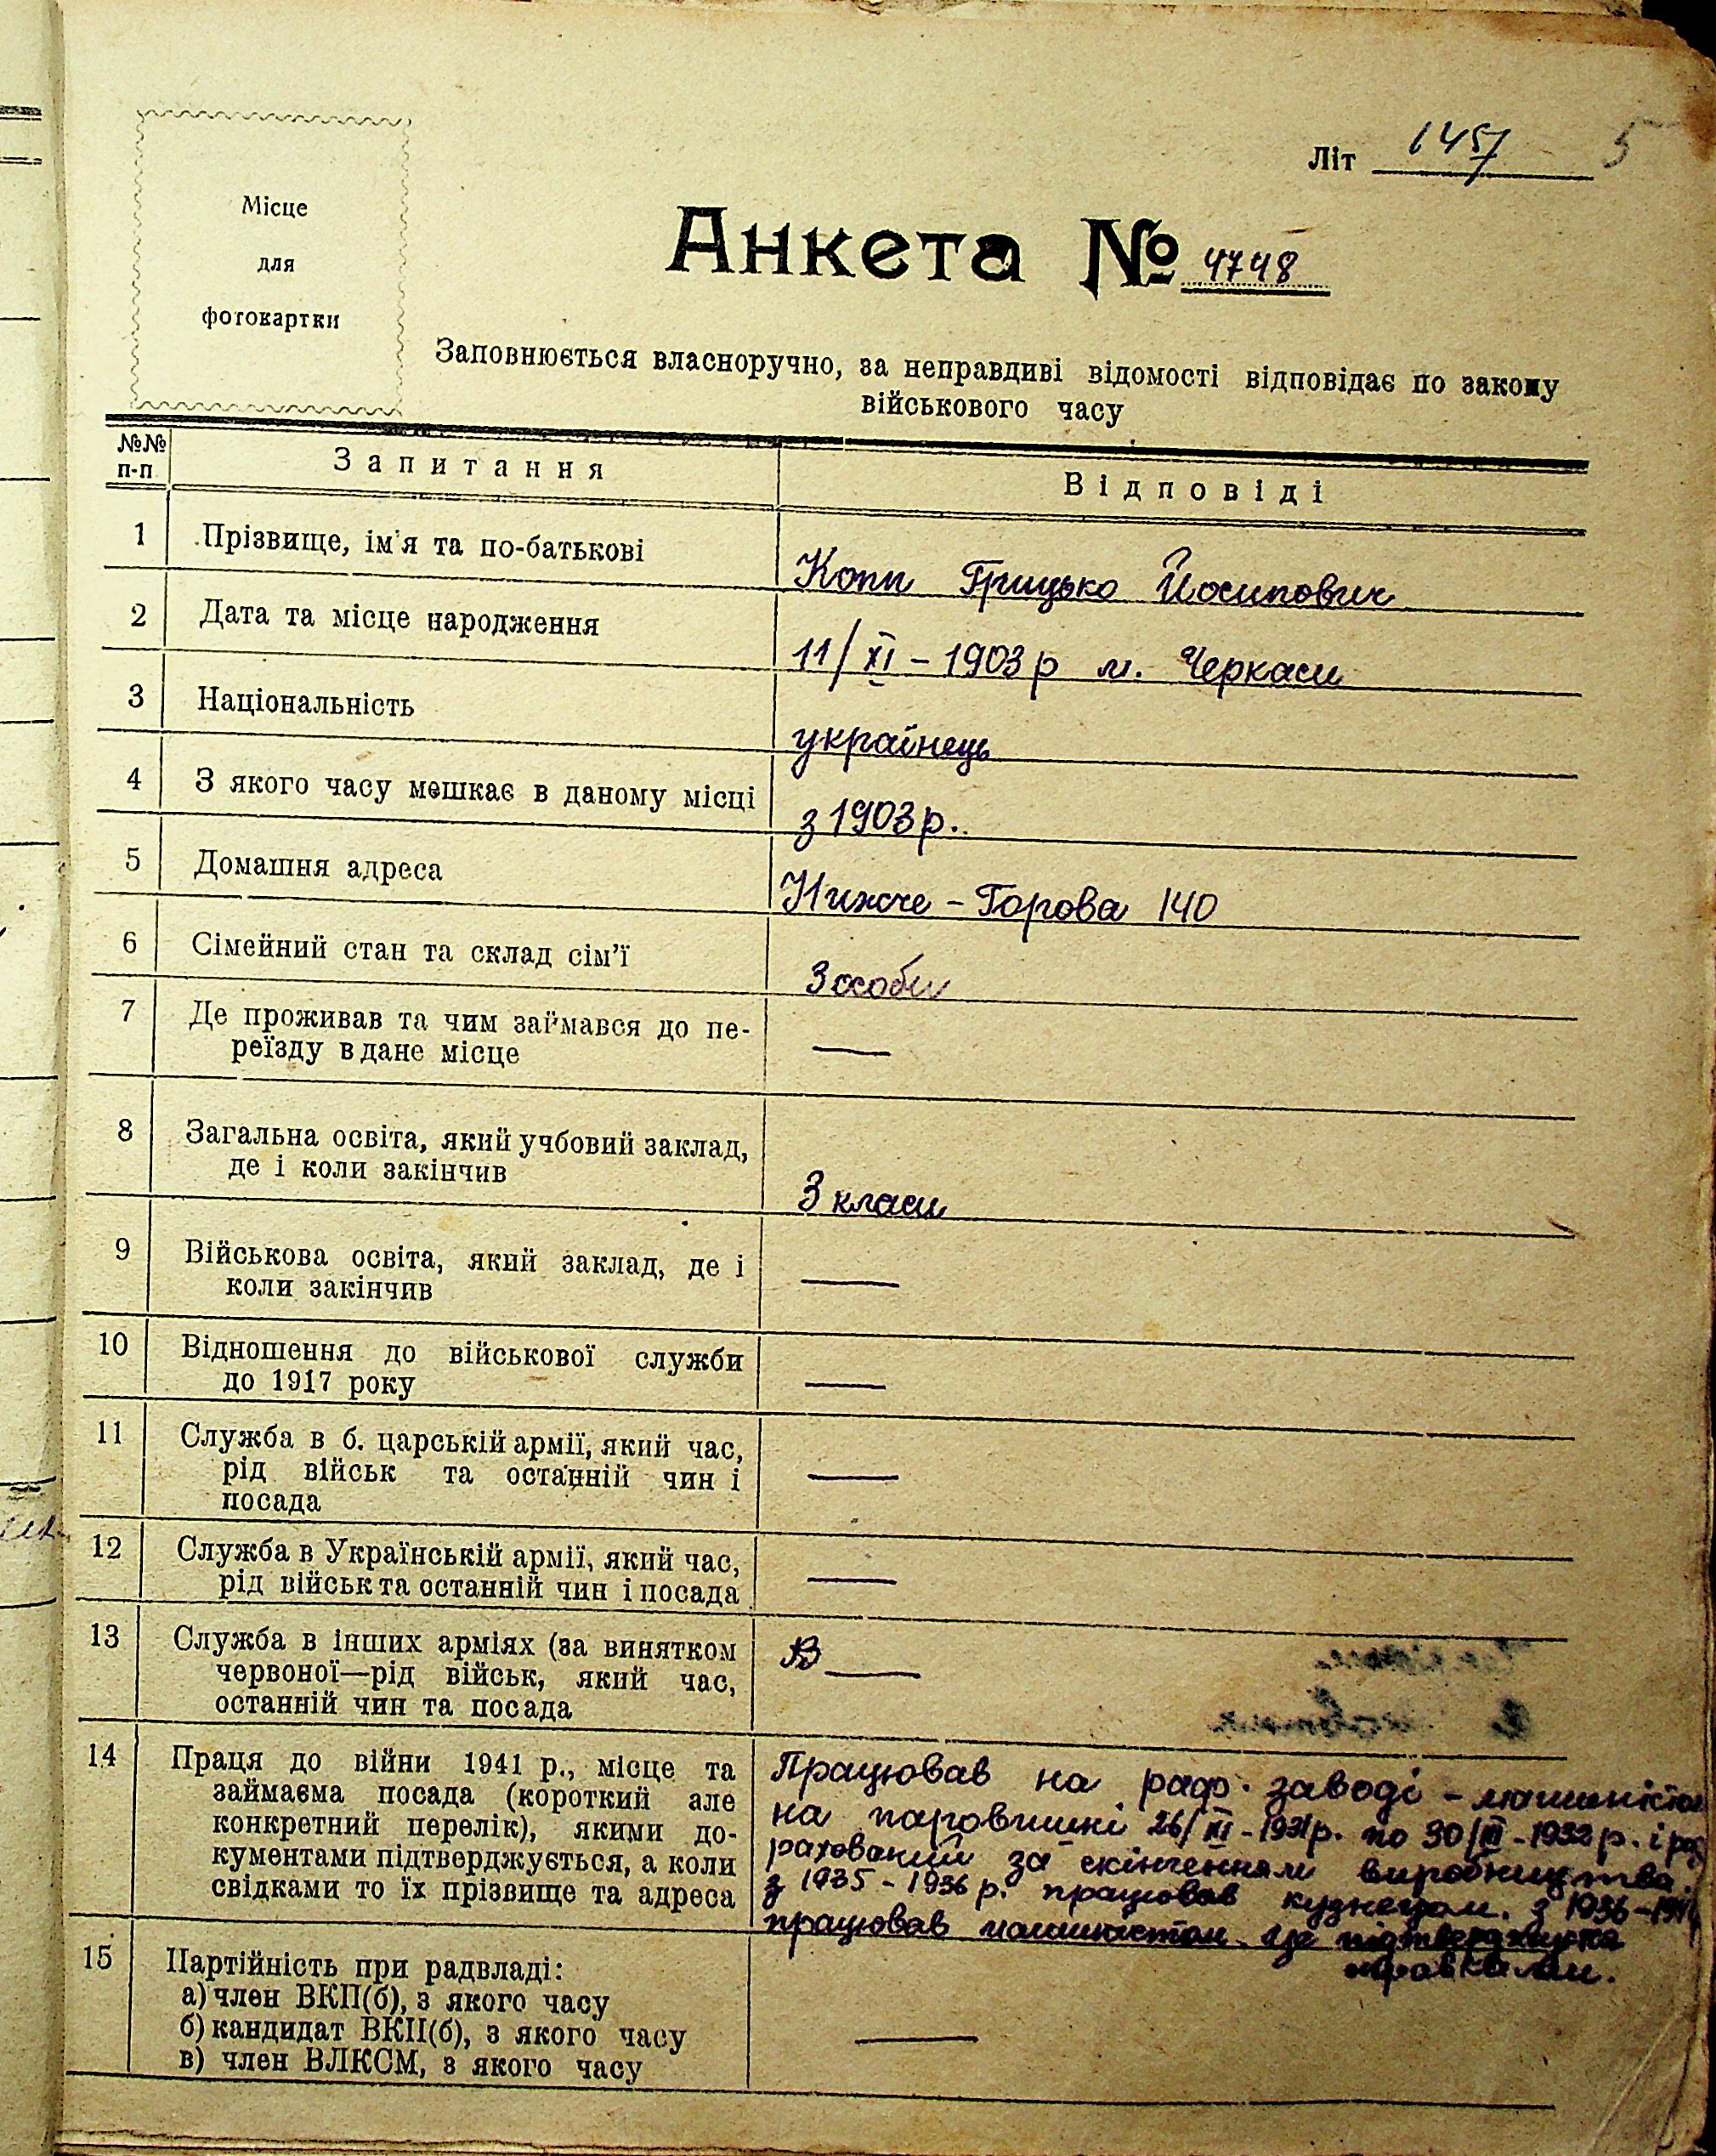 Літ 1457 5
Місце
для
фотокартки
Анкета № 4748
Заповнюється власноручно, за неправдиві відомості відповідає по закону
військового часу
№№ п-п Запитання Відповіді
1 Прізвище, ім'я та по-батькові Копп Грицько Йосипович
2 Дата та місце народження 11/XI – 1903 р м. Черкаси
3 Національність українець
4 З якого часу мешкає в даному місці з 1903 р.
5 Домашня адреса Нижче – Горова 140
6 Сімейний стан та склад сім'ї 3 особи
7 Де проживав та чим займався до пе-
реїзду в дане місце —
8 Загальна освіта, який учбовий заклад,
де і коли закінчив 3 класи
9 Військова освіта, який заклад, де і
коли закінчив —
10 Відношення до військової служби
до 1917 року —
11 Служба в б. царській армії, який час,
рід військ та останній чин і
посада —
12 Служба в Українській армії, який час,
рід військ та останній чин і посада —
13 Служба в інших арміях (за винятком
червоної—рід військ, який час,
останній чин та посада —
14 Праця до війни 1941 р., місце та
займаєма посада (короткий але
конкретний перелік), якими до-
кументами підтверджується, а коли
свідками то їх прізвище та адреса
Працював на раф. заводі – машиністом
на паровишні 26/ - 1931 р. по 30/III - 1932 р. і
рахований за скінченням виробництва.
з 1935 - 1936 р. працював кузнецом. з 1936 -
працював машиністом. це підтверджується
справками.
15 Партійність при радвладі:
а) член ВКП(б), з якого часу
б) кандидат ВКП(б), з якого часу
в) член ВЛКСМ, з якого часу —